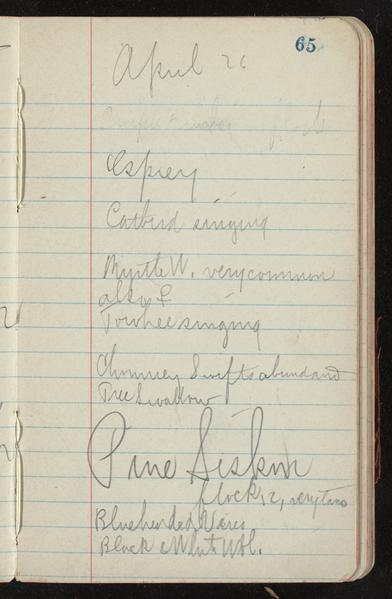 65
April 26
Osprey
Catbird singing
Myrtle W. very common
also ♀
Towhee singing
Chimney Swifts abundant
Tree Swallow
Pine Siskin
flock 12, very tame
Blueheaded Vireo
Black & White Wbl.